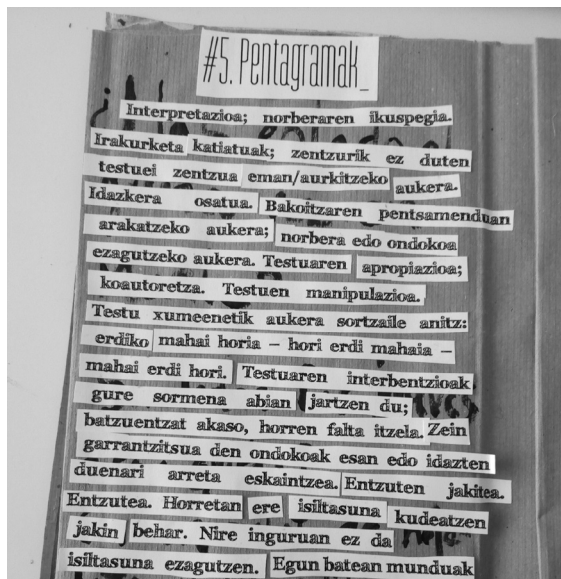 #5. Pentagramak_
Interpretazioa; norberaren ikuspegia.
Irakurketa katiatuak; zentzurik ez duten
testuei zentzua eman/aurkitzeko aukera.
Idazkera osatua. Bakoitzaren pentsamenduan
arakatzeko aukera; norbera edo ondokoa
ezagutzeko aukera. Testuaren apropiazioa;
koautoretza. Testuen manipulazioa.
Testu xumeenetik aukera sortzaile anitz:
erdiko mahai horia – hori erdi mahaia –
mahai erdi hori. Testuaren interbentzioak
gure sormena abian jartzen du;
batzuentzat akaso, horren falta itzela. Zein
garrantzitsua den ondokoak esan edo idazten
duenari arreta eskaintzea. Entzuten jakitea.
Entzutea. Horretan ere isiltasuna kudeatzen
jakin behar. Nire inguruan ez da
isiltasuna ezagutzen. Egun batean munduak